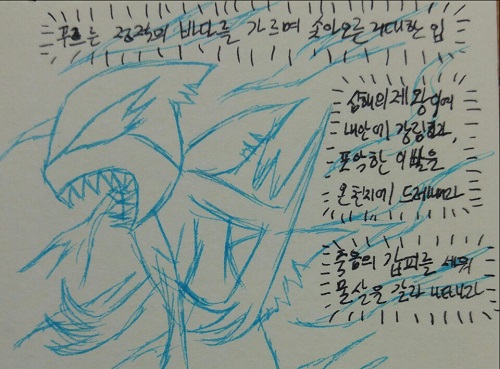 푸르른 정적의 바다를 가르며 솟아오를 거대한 입
심해의 제왕이여
내 안에 강림하라,
포악한 이빨을
온 천지에 드러내라
죽음의 갑피를 세워
물살을 갈라 나타나라